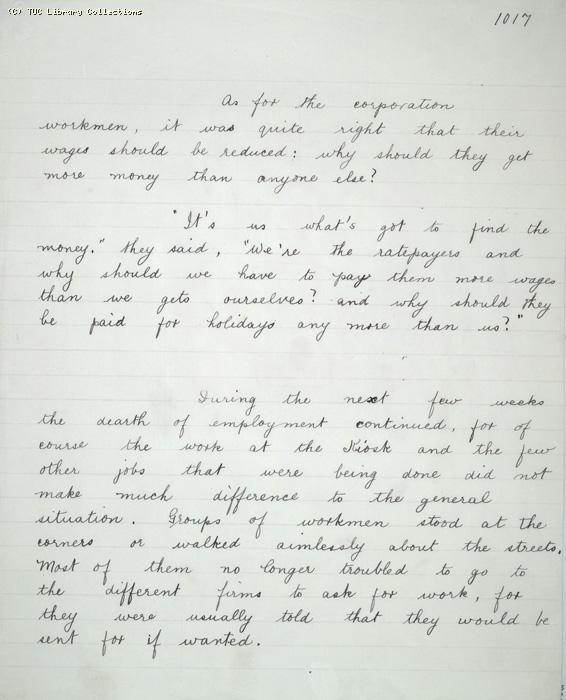 (C) TUC Library Collections
1017
As for the corporation
workmen, it was quite right that their
wages should be reduced: why should they get
more money than anyone else?
"It's us what's got to find the
money." they said, "We're the ratepayers and
why should we have to pay them more wages
than we gets ourselves? and why should they
be paid for holidays any more than us?"
During the next few weeks
the dearth of employment continued, for of
course the work at the Kiosk and the few
other jobs that were being done did not
make much difference to the general
situation. Groups of workmen stood at the
corners or walked aimlessly about the streets.
Most of them no longer troubled to go to
the different firms to ask for work, for
they were usually told that they would be
sent for if wanted.